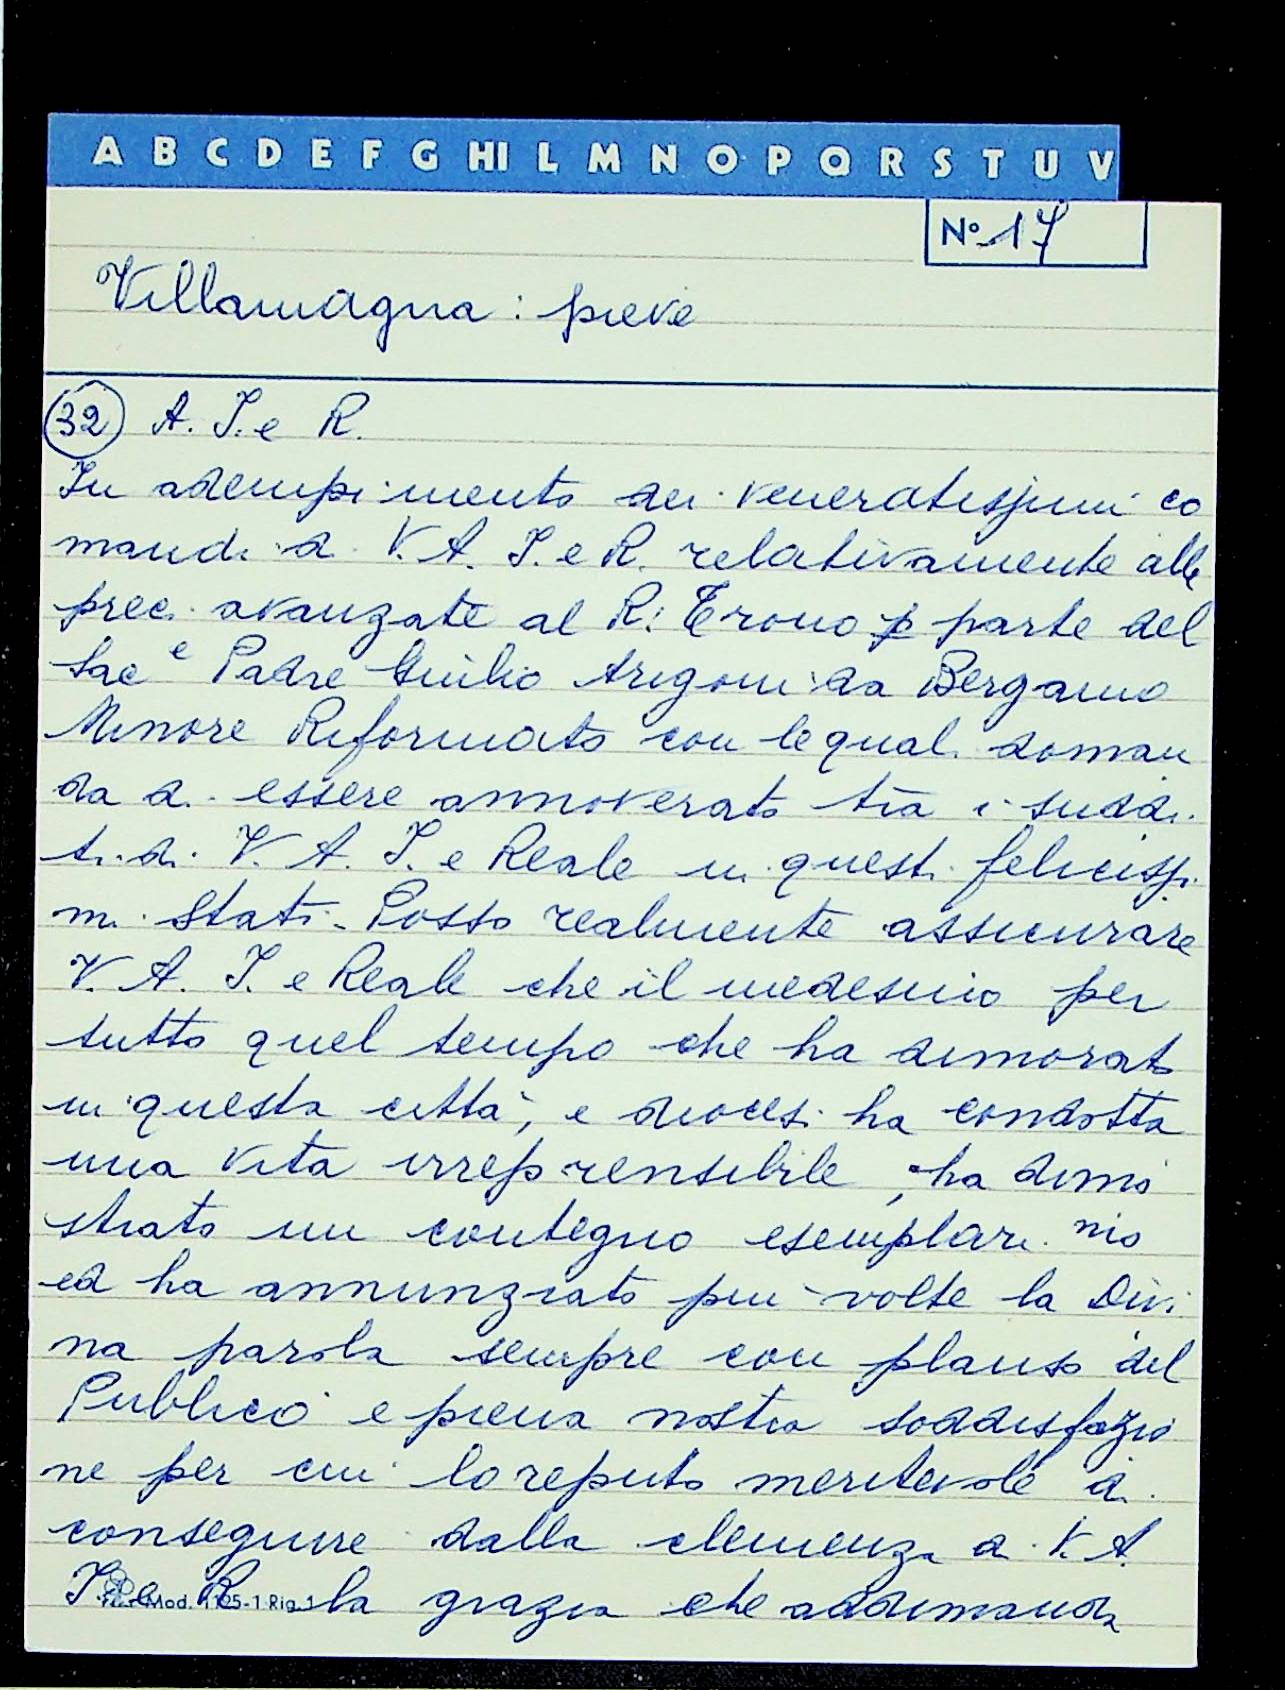 A B C D E F G HI L M N O P Q R S T U V
N° 17
Villamagna: pieve
32 A. I. e R.
In adempimento dei veneratissimi co
mandi di V. A. I. e R. relativamente alle
preci avanzate al R: Trono p parte del
Sac e Padre Giulio Arigoni da Bergamo
Minore Riformato con le quali doman
da di essere annoverato tra i suddi
ti di V. A. I. e Reale in questi felicissi
mi Stati. Posso realmente assicurare
V. A. I. e Reale che il medesimo per
tutto quel tempo che ha dimorato
in questa città, e diocesi ha condotta
una vita irreprensibile, ha dimo
strato un contegno esemplari mo
ed ha annunziato più volte la Divi
na parola sempre con plauso del
Pubblico e piena nostra soddisfazio
ne per cui lo reputo meritevole di
conseguire dalla clemenza di V. A.
I. e R. la grazia che addimanda
Mod. 1125-1 Rig. 1